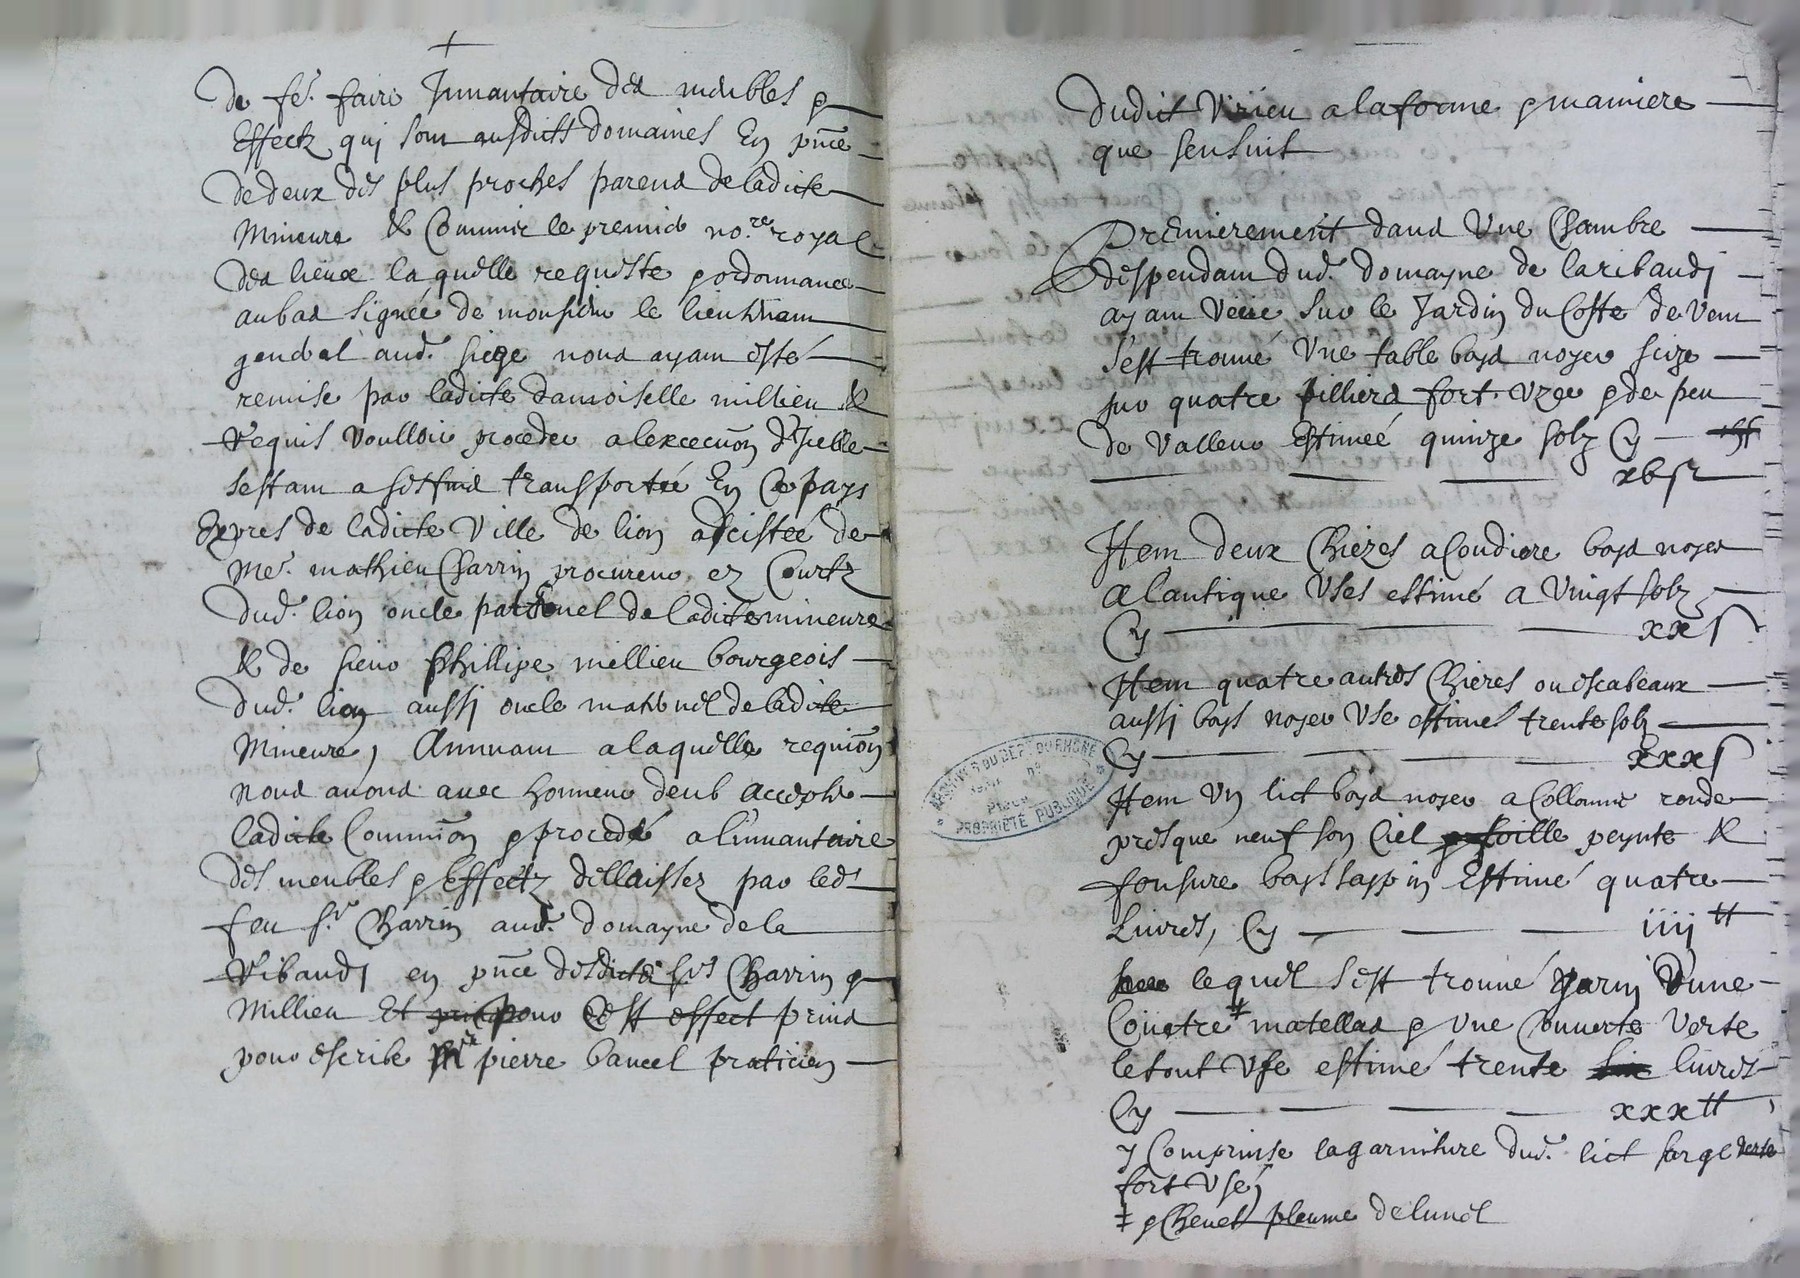 de fe. faire Jnnantaire des meubles et
Effectz quj sont ausdictz domaines En pnce
de deux des plus proches parens de ladicte
Mineure & Commis le premier no.re royal
des lieux laquelle requeste et ordonnance
au bas signée de monsieur le lieutenant
general aud. siege nous ayant esté
remise par ladicte damoiselle millieu &
requis voulloir proceder a lexecuon dJcelle
sestant a ses fins transportée En Ce pays
Expres de ladicte Ville de lion assistée de
Me. mathieu Charrin procureur ez Courtz
dud. lion oncle paternel de ladicte mineure
& de sieur Phillipe millieu bourgeois
dud. lion aussi oncle maternel de ladicte
Mineure, Annuant a laquelle requion
Nous avons avec honneur deub accepte
ladicte Commion et procedé a linnantaire
des meubles et Effectz dellaissez par led
feu sr. Charrin aud. domayne de la
Ribaudj en pnce desdictz srs Charrin et
Millieu Et pour Cest effect prins
pour escribe Me pierre bancel praticien
dudict Virieu a la forme et maniere
que sensuit
Premierement dans Vne Chambre
despendant dud. domayne de la ribaudj
ayant Veüe sur le Jardin du Costé de Vent
sest trouué Vne table boys noyer size
sur quatre pilliers fort vzee et de peu
de valleur Estimeé quinze solz Cy
xv s
Jtem deux Chiezes a Coudiere boys noyer
a lantique Vses estimé a Vingt solz
Cy xx s
Jtem quatre autres Chieres ou escabeaux
aussj boys noyer Vse estimes trente solz
Cy xxx s
ARCHIVES DU DEPT DU RHONE
PROPRIÉTÉ PUBLIQUE
Jtem Vn lict boys noyer a Collonne ronde
presque neuf son Ciel toille peynte &
fonsure boys sappin Estimé quatre
Liures, Cy iiij tt
lequel sest trouué garnj dune
Couatre ‡ matellas et vne Couuerte Verte
le tout Vse estimé trente liures
Cy xxx tt
y Comprinse la garniture dud. lict sarge verte
fort Vsej
‡ et Cheuet plume